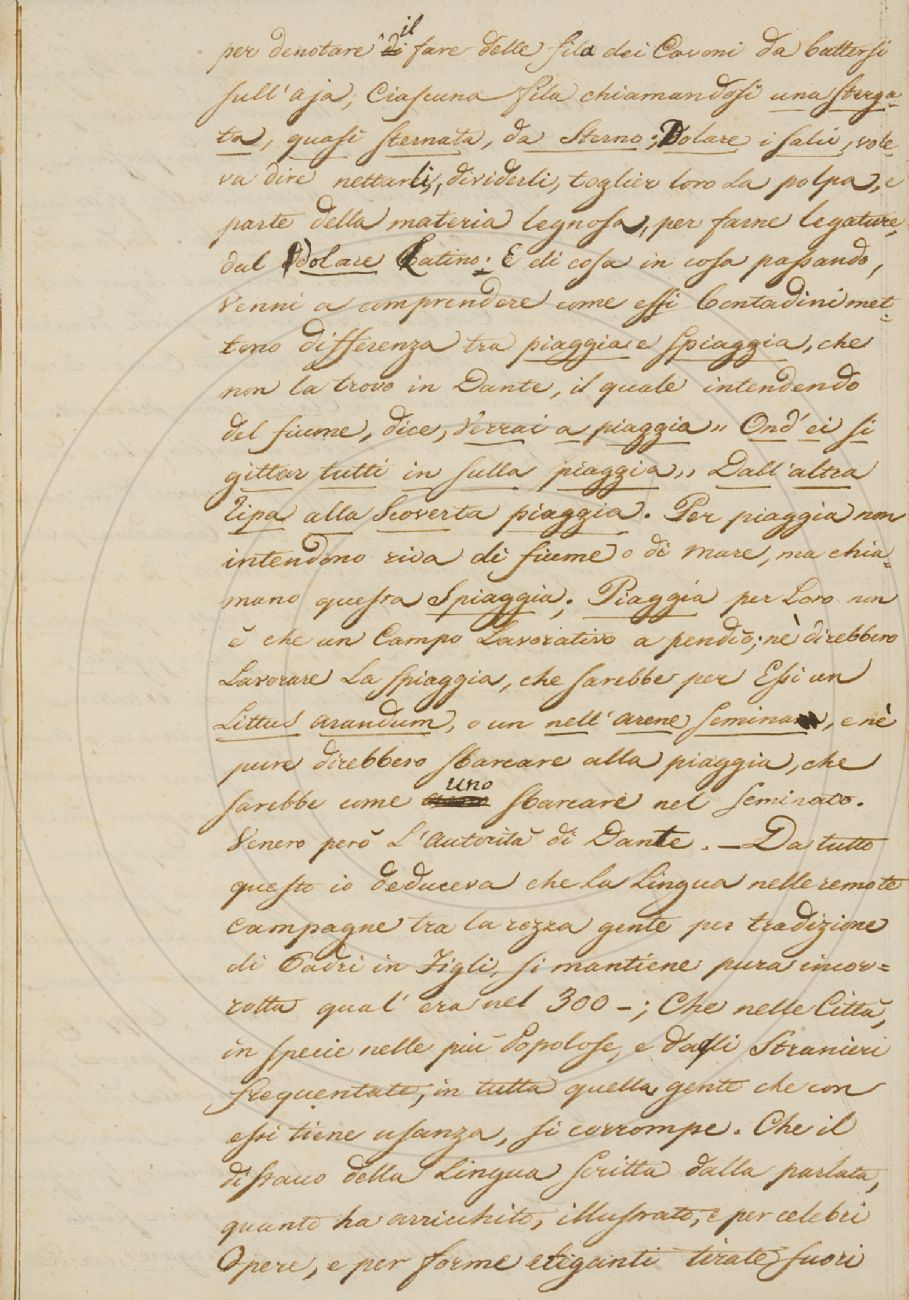 per denotare il fare delle fila dei Covoni da battersi
sull'aja; Ciascuna fila chiamandosi una sterga-
ta, quasi sternata, da Sterno; Dolare i salci, vole-
va dire nettarli, dividerli, toglier loro la polpa, e
parte della materia legnosa, per farne legature,
dal dolare Latino: E di cosa in cosa passando,
venni a comprendere come essi Contadini met-
tono differenza tra piaggia e spiaggia, che
non la trovo in Dante, il quale intendendo
del fiume, dice, Verrai a piaggia,, Ond'ei si
gittar tutti in sulla piaggia,, Dall'altra
ripa alla scoverta piaggia. Per piaggia non
intendono riva di fiume o di mare, ma chia-
mano questa Spiaggia; Piaggia per Loro non
è che un Campo Lavorativo a pendìo; nè direbbero
Lavorare La spiaggia, che sarebbe per Essi un
Littus arandum, o un nell'arene, e nè
pure direbbero sbarcare alla piaggia, che
sarebbe come uno sbarcare nel seminato.
Venero però L'autorità di Dante. — Da tutto
questo io deduceva che la Lingua nelle remote
campagne tra la rozza gente per tradizione
di Padri in Figli, si mantiene pura incor=
rotta qual'era nel 300 -; Che nelle Città,
in specie nelle più Popolose, e dagli Stranieri
frequentate, in tutta quella gente che con
essi tiene usanza, si corrompe. Che il
distacco della Lingua scritta dalla parlata,
quanto ha arricchito, illustrato, e per celebri
Opere, e per forme eleganti tirate fuori